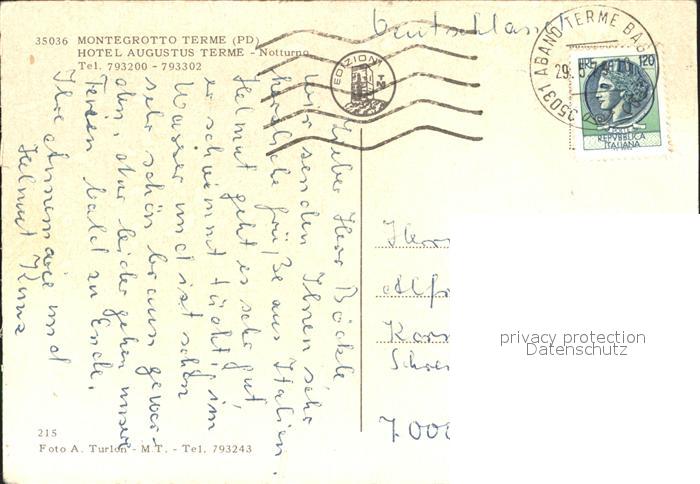 35036 MONTEGROTTO TERME (PD)
HOTEL AUGUSTUS TERME - Notturno
Tel. 793200 - 793302
Deutschland
EDIZIONI
TM
35031 ABANO TERME BAG
29.5
LIRE 120
POSTE
REPVBBLICA
ITALIANA
Lieber Herr Böckle
wir senden Ihnen sehr
herzliche Grüße aus Italien.
Helmut geht es sehr gut,
er schwimmt tüchtig im
Wasser und ist schon
sehr schön braun gewor-
den, aber leider gehen unsere
Ferien bald zu Ende.
Ihre Annemarie und
Helmut Kunz
Herr
Alfr
7000
privacy protection
Datenschutz
215
Foto A. Turlon - M.T. - Tel. 793243